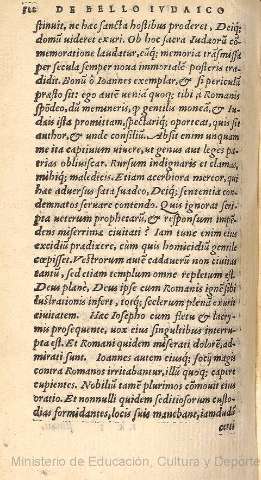 522 DE BELLO IVDAICO
stinuit, ne hac sancta hostibus proderet, Deiq;
domũ uideret exuri. Ob hoc sacra Iudæorũ cõ
memoratione laudatur, eáq; memoria trãsmissa
per secula semper noua immortalẽ posteris tra-
didit. Bonũ ô Ioannes exemplar, & si pericula
præsto sit: ego autẽ uenia quoq; tibi, à Romanis
spõdeo, dũ memineris, ꝙ gentilis moneã, & Iu-
dæis ista promittam, spectariq; oporteat, quis sit
author, & unde consiliũ. Absit enim unquam
me ita captiuum uiuere, ut genus aut leges pa-
trias obliuiscar. Rursum indignaris et clamas,
mihiq; maledicis. Etiam acerbiora mereor, qui
hæc aduersus fata suadeo, Deiq; sententia con-
demnatos seruare contendo. Quis ignorat scri-
pta ueterum prophetarũ, & responsum impẽ-
dens miserrimæ ciuitati? Iam tunc enim eius
excidiũ prædixere, cùm quis homicidiũ gentile
cœpisset. Vestrorum autẽ cadauerũ non ciuitas
tantũ, sed etiam templum omne repletum est.
Deus planè, Deus ipse cum Romanis ignẽ sibi
lustrationis infert, totq; scelerum plenã exurit
ciuitatem. Hæc Iosepho cum fletu & lacry-
mis prosequente, uox eius singultibus interru-
pta est. Et Romani quidem miserati dolorẽ, ad-
mirati sunt. Ioannes autem eiusq; socij magis
contra Romanos irritabantur, illũ quoq; capere
cupientes. Nobiliũ tamẽ plurimos cõmouit eius
oratio. Et nonnulli quidem seditiosorum custo-
dias formidantes, locis suis manebant, iamdudũ
certi
Ministerio de Educación, Cultura y Deporte